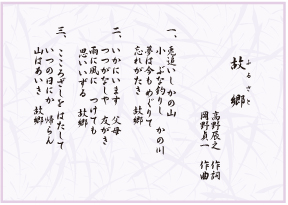 故郷
ふるさと
高野辰之 作詞
岡野貞一 作曲
一、兎追いし かの山
小ぶな釣りし かの川
夢は今も めぐりて
忘れがたき 故郷
二、いかにいます 父母
つつがなしや 友がき
雨に風に つけても
思いいずる 故郷
三、こころざしを はたして
いつの日にか 帰らん
山はあおき 故郷